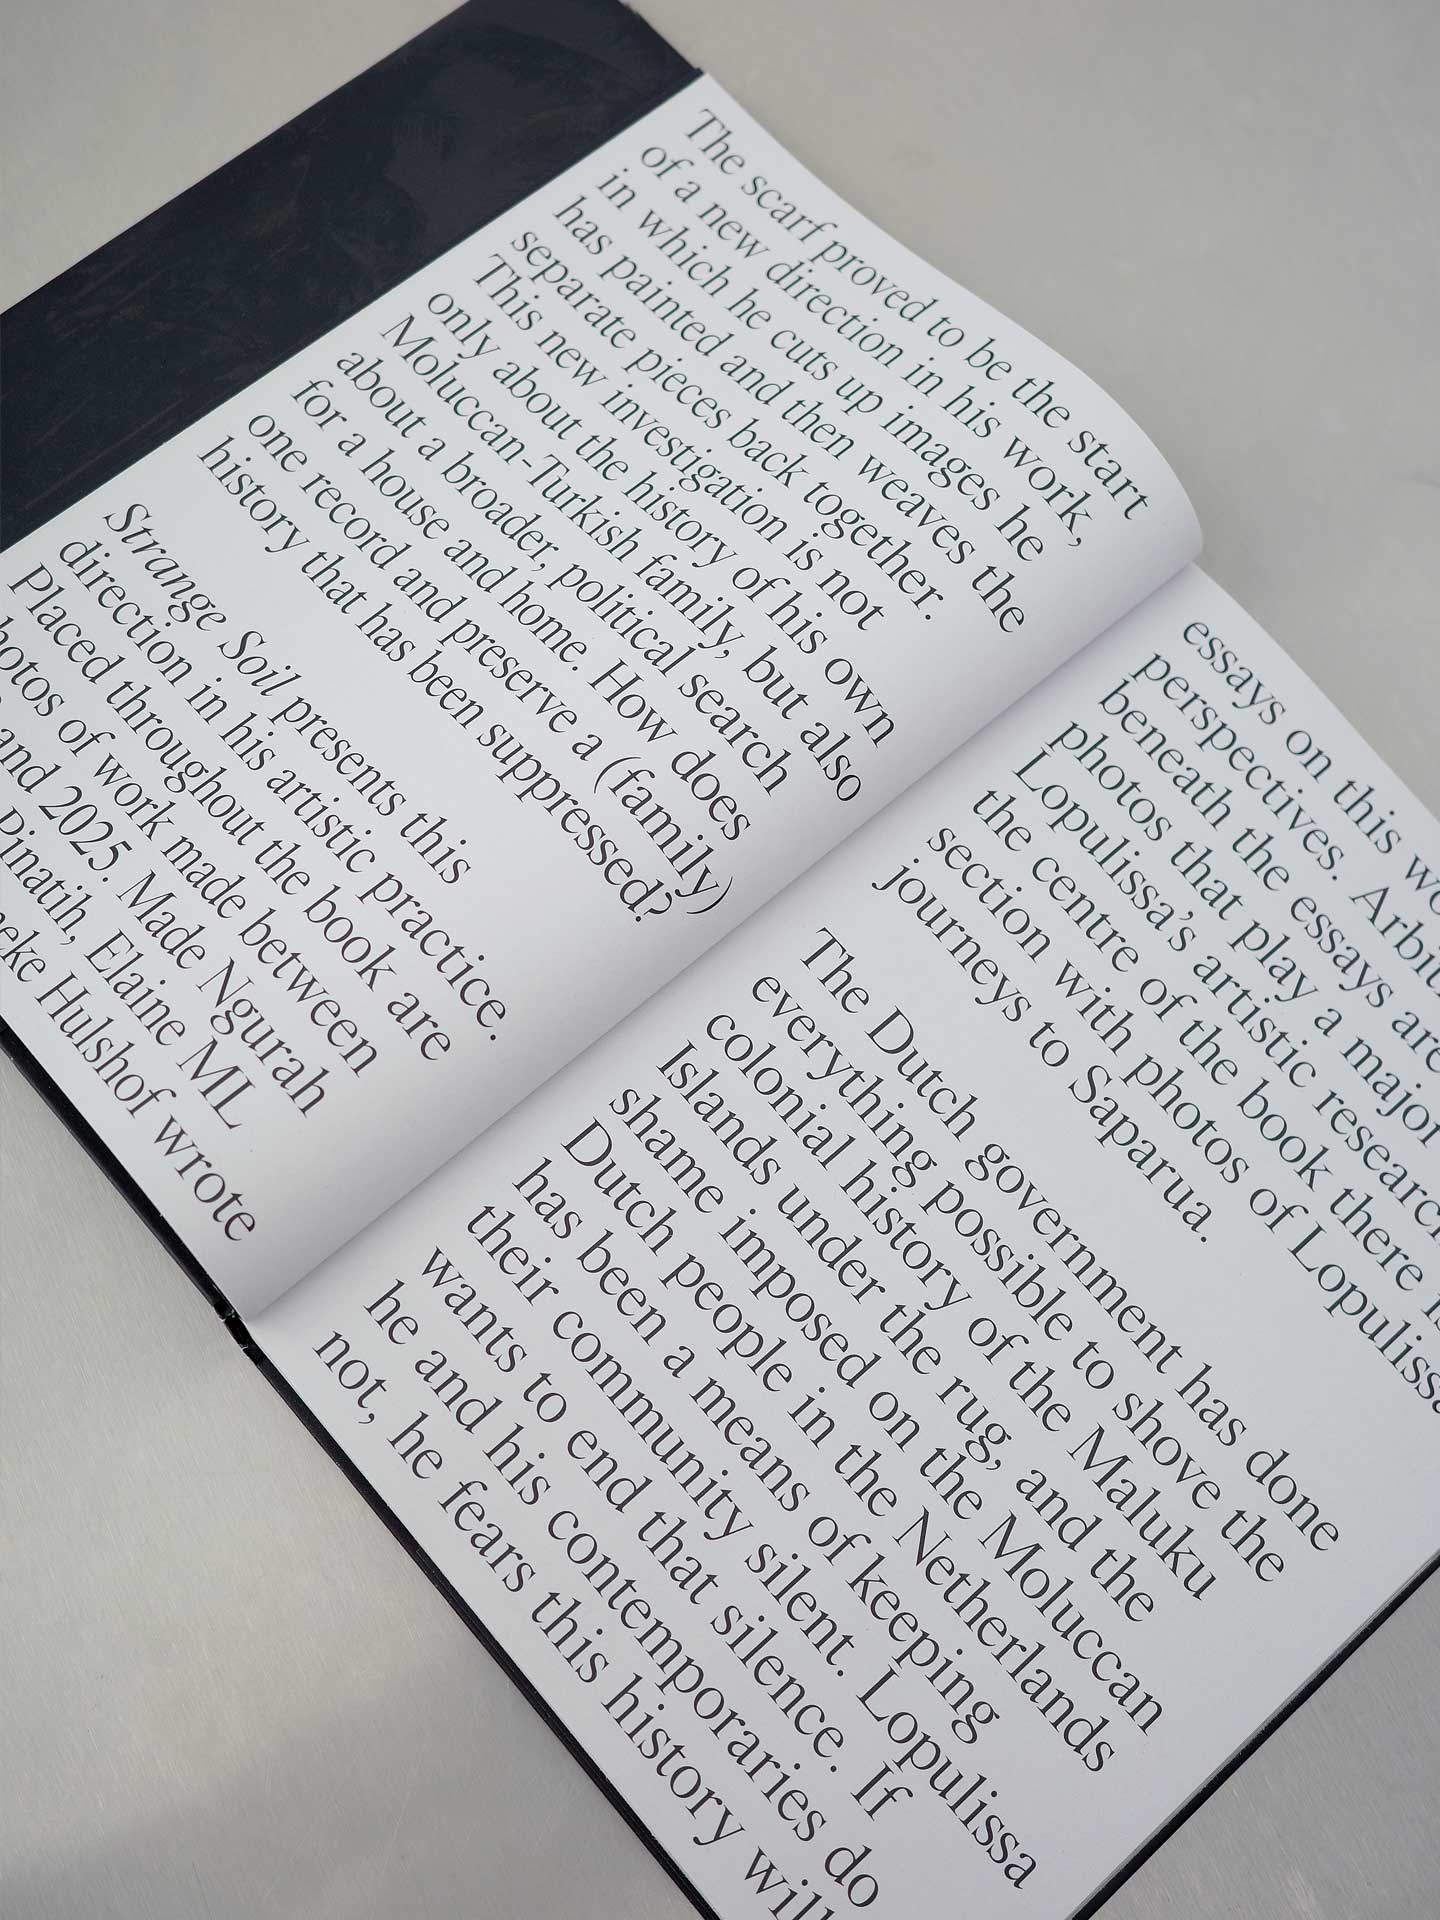 The scarf proved to be the start
of a new direction in his work,
in which he cuts up images he
has painted and then weaves the
separate pieces back together.
This new investigation is not
only about the history of his own
Moluccan-Turkish family, but also
about a broader, political search
for a house and home. How does
one record and preserve a (family)
history that has been suppressed?
Strange Soil presents this
direction in his artistic practice.
Placed throughout the book are
of work made between
and 2025. Made Ngurah
Pinatih, Elaine ML
Hulshof wrote
essays on this
perspectives.
beneath the essays are
photos that play a major
Lopulissa's artistic research
the centre of the book there
section with photos of Lopulissa
journeys to Saparua.
The Dutch government has done
everything possible to shove the
colonial history of the Maluku
Islands under the rug, and the
shame imposed on the Moluccan
Dutch people in the Netherlands
has been a means of keeping
their community silent. Lopulissa
wants to end that silence. If
he and his contemporaries do
not, he fears this history will